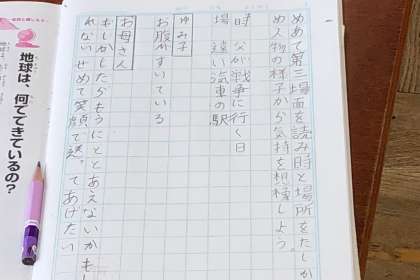 めあて第三場面を読み時と場所をたしか
め人物の様子から気持を想像しよう。
時 父が戦争に行く日
場 遠い汽車の駅
ゆみ子
お腹がすいている
お母さん
もしかしたらもうにどとあえないかもし
れないせめて笑顔で送ってあげたい
地球は、何でできているの?